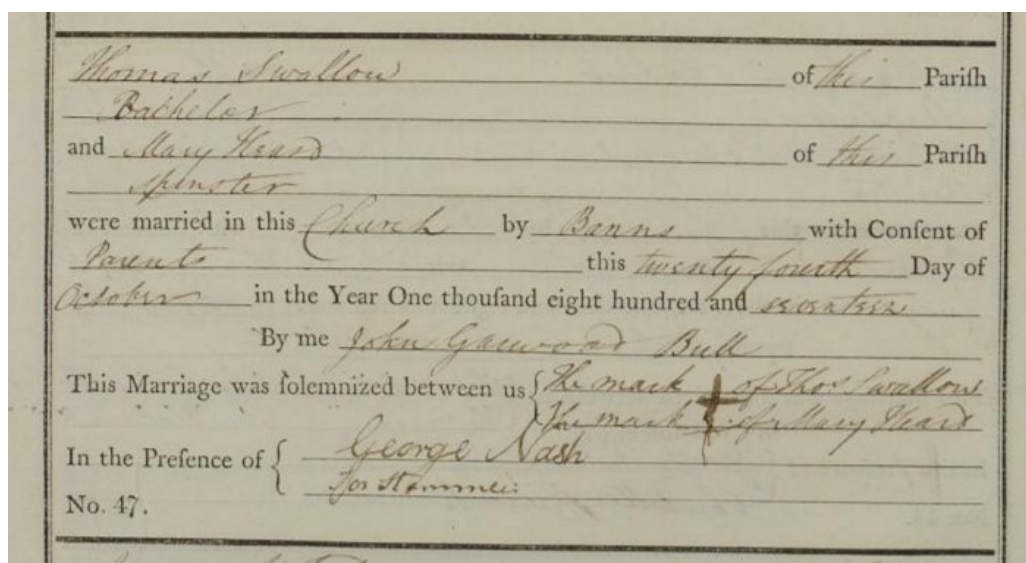 Thomas Swallow of this Pariſh
Bachelor
and Mary Heard of this Pariſh
Spinster
were married in this Church by Banns with Conſent of
Parents this twenty fourth Day of
October in the Year One thouſand eight hundred and seventeen
By me John Garwood Bull
This Marriage was ſolemnized between us { The mark of Thos Swallow
The mark of Mary Heard
In the Preſence of { George Nash
No. 47.